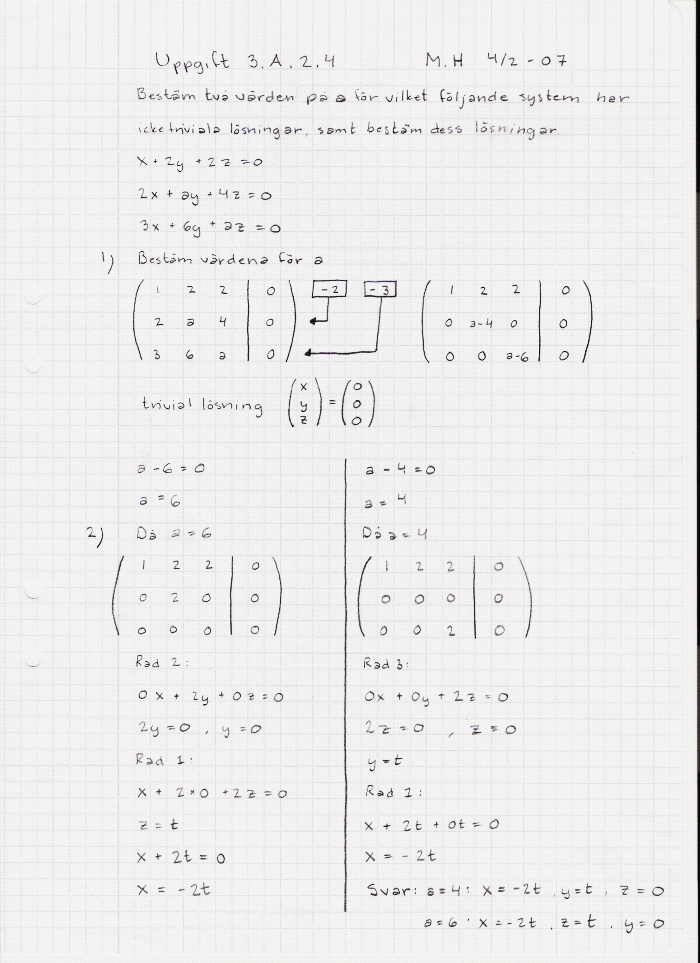 Uppgift 3.A.2.4 M.H 4/2-07
Bestäm två värden på a för vilket följande system har
icke triviala lösningar, samt bestäm dess lösningar.
x + 2y + 2z = 0
2x + ay + 4z = 0
3x + 6y + az = 0
1) Bestäm värdena för a
1 2 2 | 0 -2 -3 1 2 2 | 0
2 a 4 | 0 0 a-4 0 | 0
3 6 a | 0 0 0 a-6 | 0
trivial lösning (x y z) = (0 0 0)
a - 6 = 0
a = 6
2) Då a = 6
1 2 2 | 0
0 2 0 | 0
0 0 0 | 0
Rad 2:
0x + 2y + 0z = 0
2y = 0 , y = 0
Rad 1:
x + 2*0 + 2z = 0
z = t
x + 2t = 0
x = -2t
a - 4 = 0
a = 4
Då a = 4
1 2 2 | 0
0 0 0 | 0
0 0 2 | 0
Rad 3:
0x + 0y + 2z = 0
2z = 0 , z = 0
y = t
Rad 1:
x + 2t + 0t = 0
x = -2t
Svar: a = 4: x = -2t , y = t , z = 0
a = 6 : x = -2t , z = t , y = 0